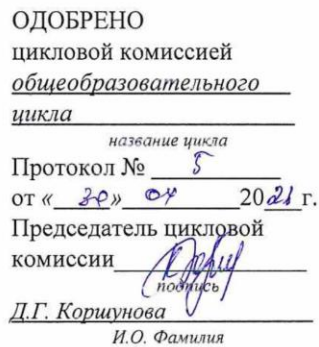 ОДОБРЕНО
цикловой комиссией
общеобразовательного
цикла
название цикла
Протокол № 5
от «30» 04 2021 г.
Председатель цикловой
комиссии
подпись
Д.Г. Коршунова
И.О. Фамилия